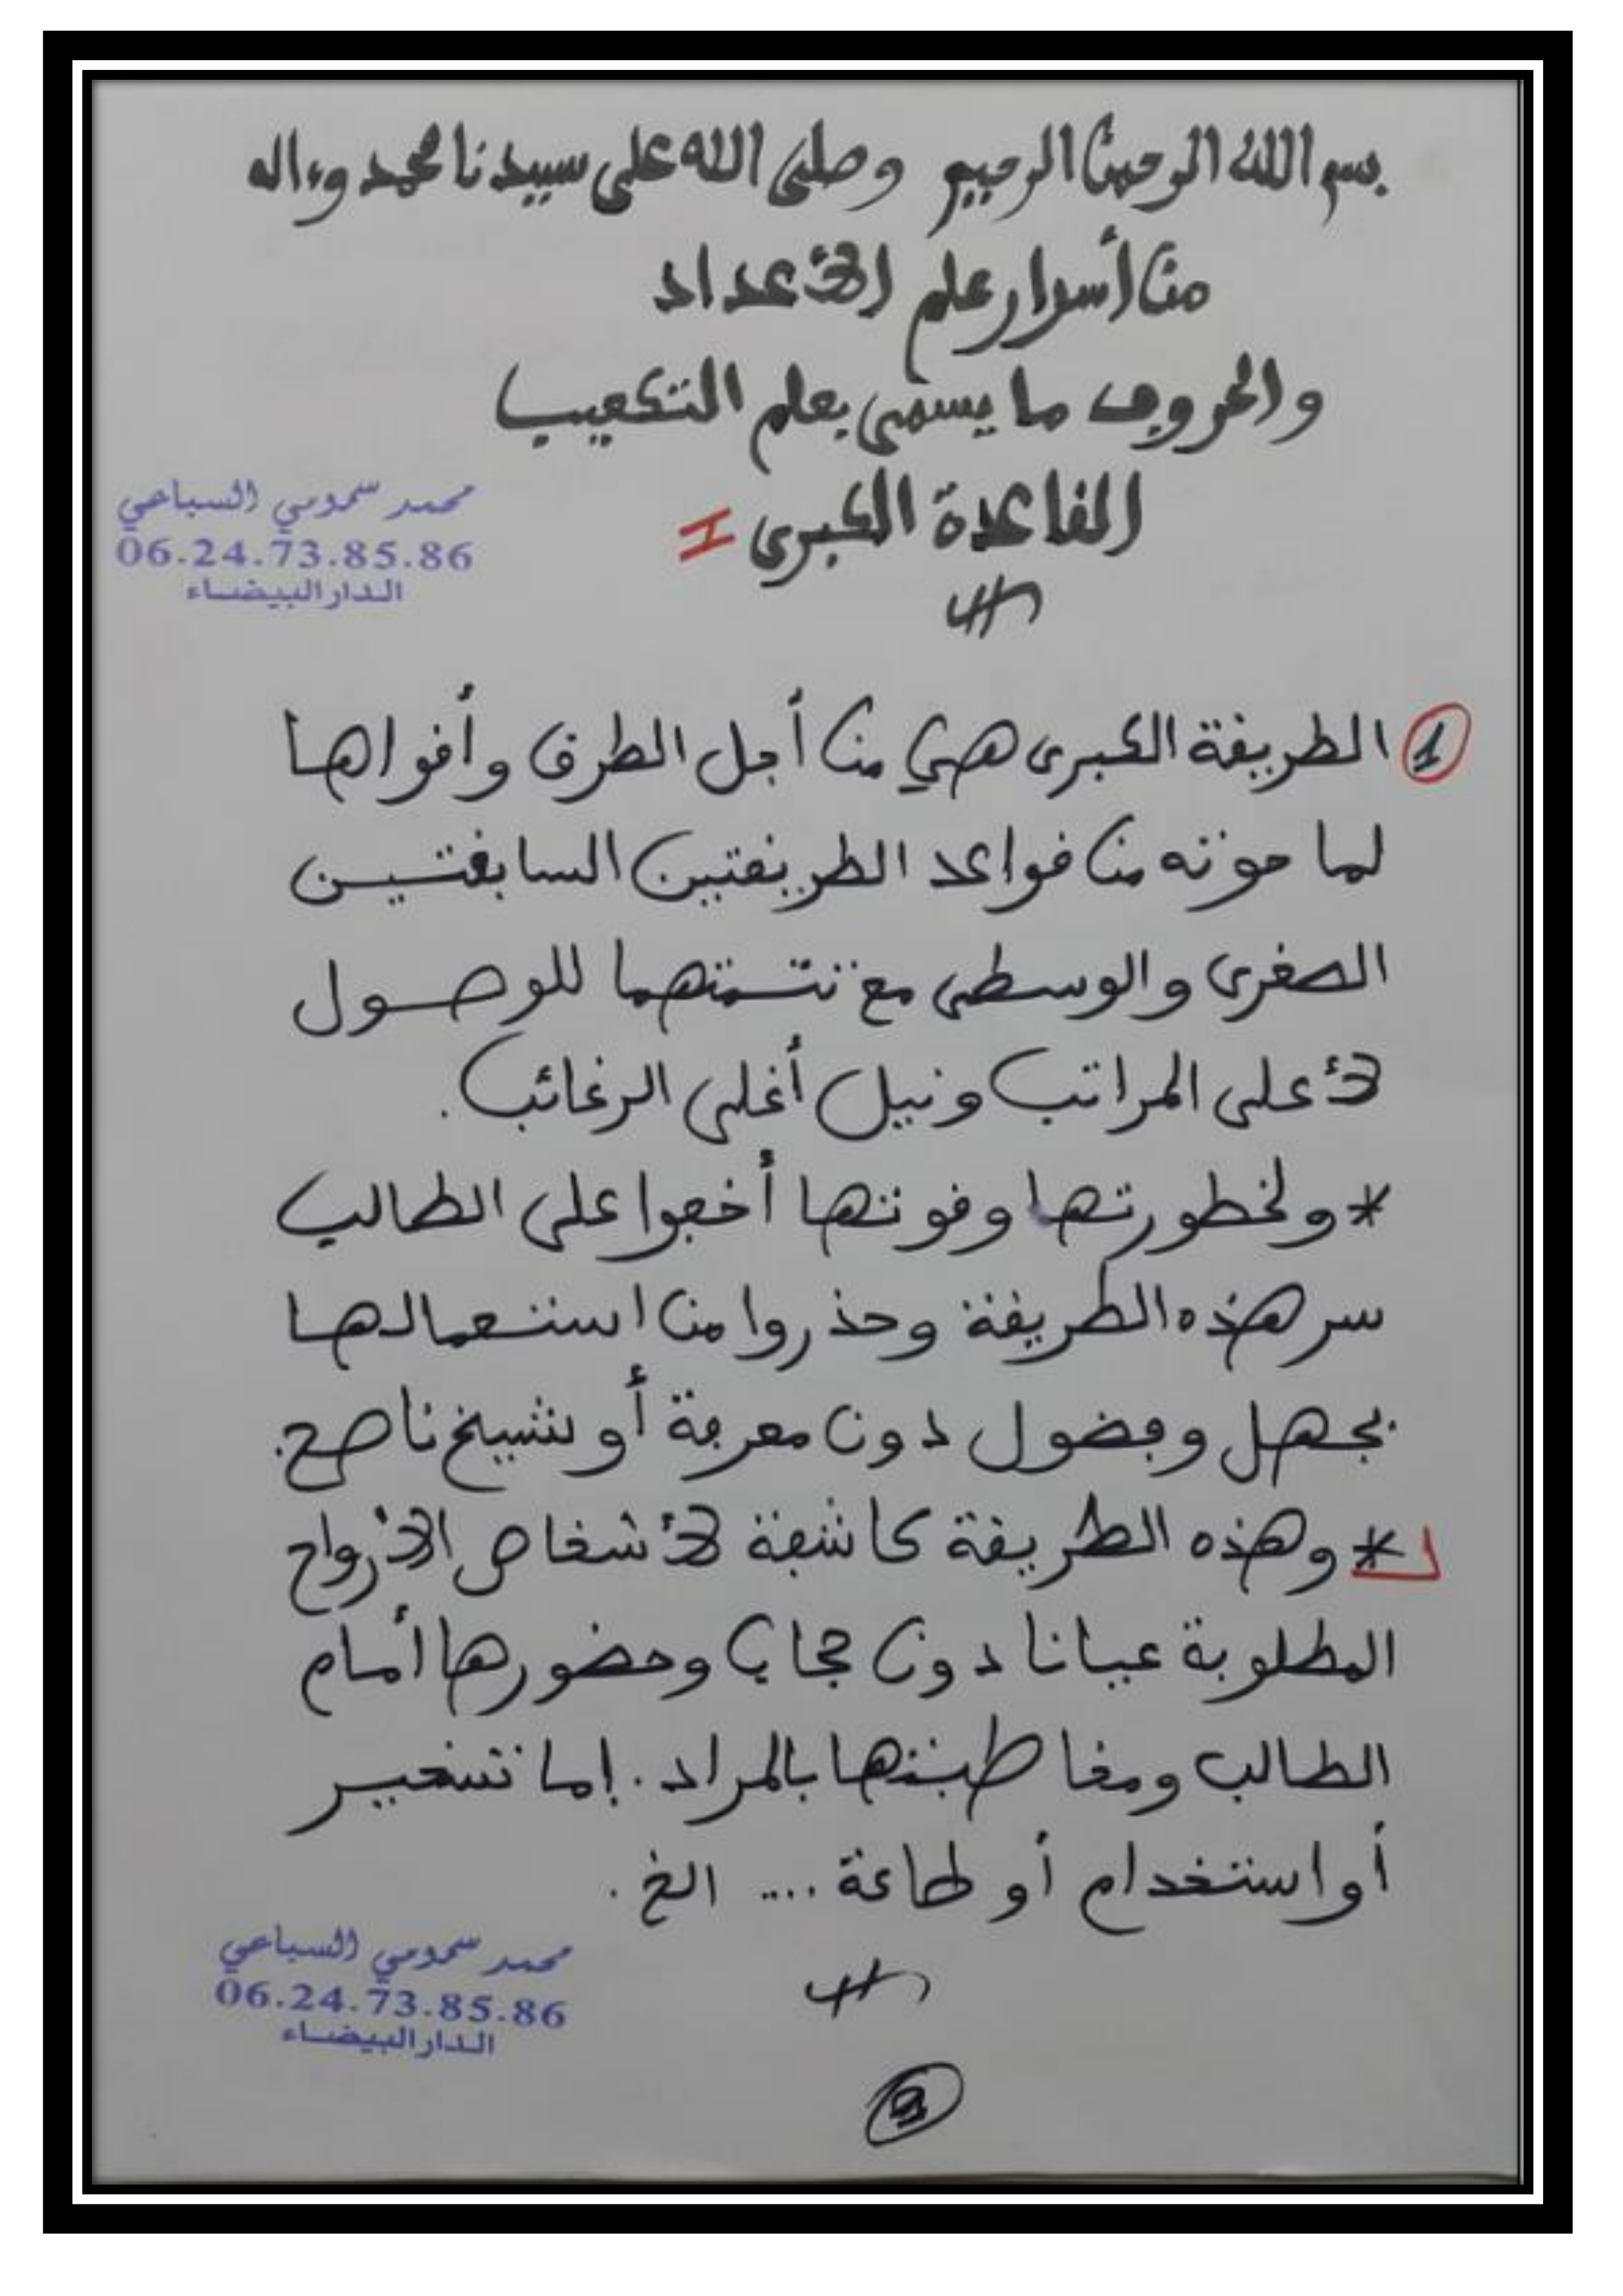 بسم الله الرحمن الرحيم وصلى الله على سيدنا محمد وءاله
من أسرار علم الأعداد
والحروف ما يسمى بعلم التكعيب
القاعدة الكبرى =
محمد سمومي السباعي
06.24.73.85.86
الدار البيضاء
1 الطريقة الكبرى هي من أجل الطرق وأقواها
لما حوته من قواعد الطريقتين السابقتين
الصغرى والوسطى مع تتمتهما للوصول
لأعلى المراتب ونيل أغلى الرغائب.
* ولخطورتها وقوتها أخفوا على الطالب
سر هذه الطريقة وحذروا من استعمالها
بجهل وفضول دون معرفة أو شيخ ناصح.
* وهذه الطريقة كاشفة لأشخاص الأرواح
المطلوبة عيانا دون حجاب وحضورها أمام
الطالب ومخاطبتها بالمراد. إما تسخير
أو استخدام أو طاعة .... الخ.
محمد سمومي السباعي
06.24.73.85.86
الدار البيضاء